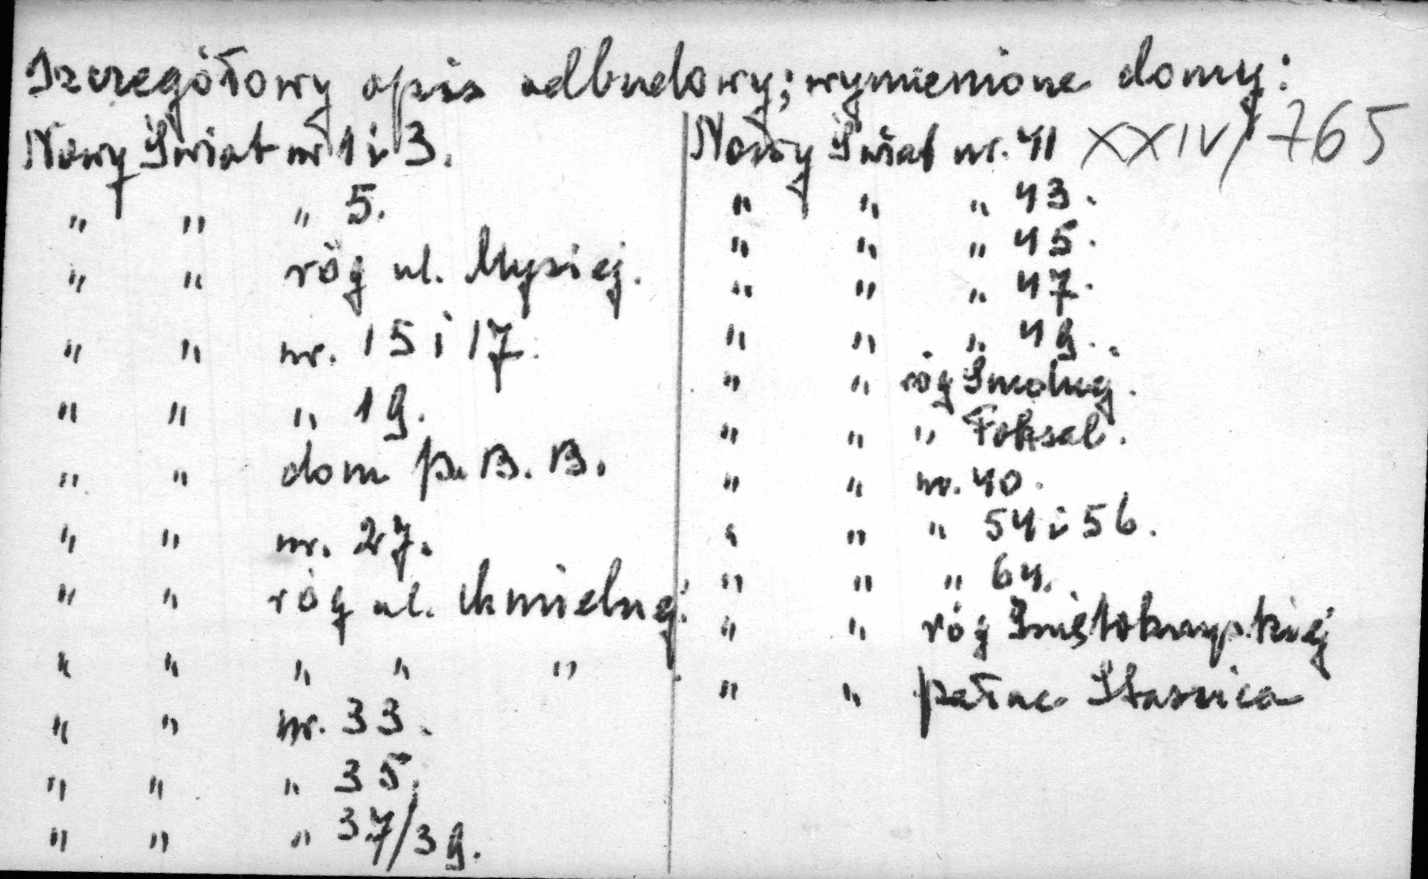 Szczegółowy opis odbudowy; wymienione domy:
XXIV/765
Nowy Świat nr 1 i 3.
" " " 5.
" " róg ul. Mysiej.
" " nr. 15 i 17.
" " " 19.
" " dom p. B. B.
" " nr. 27.
" " róg ul. Chmielnej.
" " " " "
" " nr. 33.
" " " 35.
" " " 37/39.
Nowy Świat nr. 41
" " " 43.
" " " 45.
" " " 47.
" " " 49.
" " róg Smolnej.
" " " Foksal.
" " nr. 40.
" " " 54 i 56.
" " " 64.
" " róg Świętokrzyskiej
" " pałac Staszica